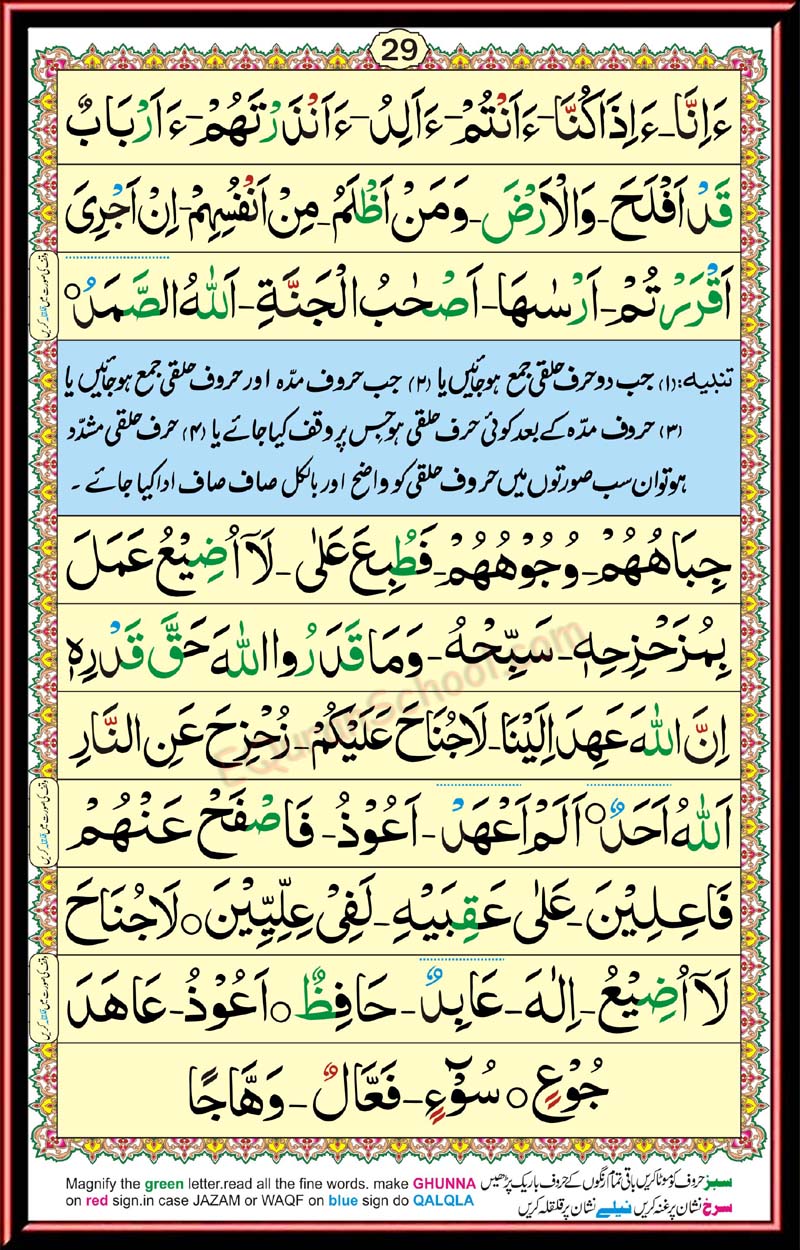 29
ءَاِنَّا۔ ءَاِذَاكُنَّا۔ ءَاَنْتُمْ۔ ءَاَلِدُ۔ ءَاَنْذَرْتَهُمْ۔ ءَاَرْبَابٌ
قَدْ اَفْلَحَ۔ وَالْاَرْضَ۔ وَمَنْ اَظْلَمُ۔ مِنْ اَنْفُسِهِمْ۔ اِنْ اَجْرِىَ
اَقْرَرْتُمْ۔ اَرْسٰىهَا۔ اَصْحٰبُ الْجَنَّةِ۔ اَللّٰهُ الصَّمَدُ○
تنبیہ: (۱) جب دو حرف حلقی جمع ہو جائیں یا (۲) جب حروف مدّہ اور حروف حلقی جمع ہو جائیں یا
(۳) حروف مدّہ کے بعد کوئی حرف حلقی ہو جس پر وقف کیا جائے یا (۴) حرف حلقی مشدّد
ہو تو ان سب صورتوں میں حروف حلقی کو واضح اور بالکل صاف صاف ادا کیا جائے ۔
جِبَاهُهُمْ۔ وُجُوْهُهُمْ۔ فَطُبِعَ عَلٰى۔ لَآ اُضِيْعُ عَمَلَ
بِمُزَحْزِحِهٖ۔ سَبِّحْهُ۔ وَمَا قَدَرُوا اللّٰهَ حَقَّ قَدْرِهٖ
اِنَّ اللّٰهَ عَهِدَ اِلَيْنَا۔ لَاجُنَاحَ عَلَيْكُمْ۔ زُحْزِحَ عَنِ النَّارِ
اَللّٰهُ اَحَدٌ○ اَلَمْ اَعْهَدْ۔ اَعُوْذُ۔ فَاصْفَحْ عَنْهُمْ
فَاعِلِيْنَ۔ عَلٰى عَقِبَيْهِ۔ لَفِىْ عِلِّيِّيْنَ○ لَاجُنَاحَ
لَآ اُضِيْعُ۔ اِلٰهَ۔ عَابِدٌ۔ حَافِظٌ○ اَعُوْذُ۔ عَاهَدَ
جُوْعٍ○ سُوْٓءٍ۔ فَعَّالٌ۔ وَهَّاجًا
EQuranSchool.com
Magnify the green letter.read all the fine words. make GHUNNA
on red sign.in case JAZAM or WAQF on blue sign do QALQLA
سبز حروف کو موٹا کریں باقی تمام رنگوں کے حروف باریک پڑھیں
سرخ نشان پر غنہ کریں نیلے نشان پر قلقلہ کریں